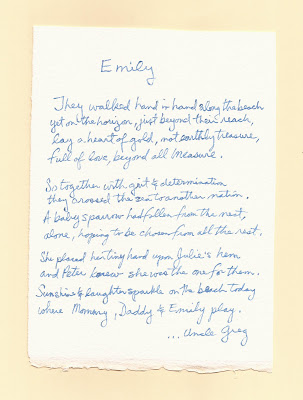 Emily
They walked hand in hand along the beach
yet on the horizon, just beyond their reach,
lay a heart of gold, not earthly treasure,
full of love, beyond all measure.
So together with grit & determination
they crossed the sea to another nation.
A baby sparrow had fallen from the nest,
alone, hoping to be chosen from all the rest.
She placed her tiny hand upon Julie's hem
and Peter knew she was the one for them.
Sunshine & laughter sparkle on the beach today
where Mommy, Daddy & Emily play.
... Uncle Greg